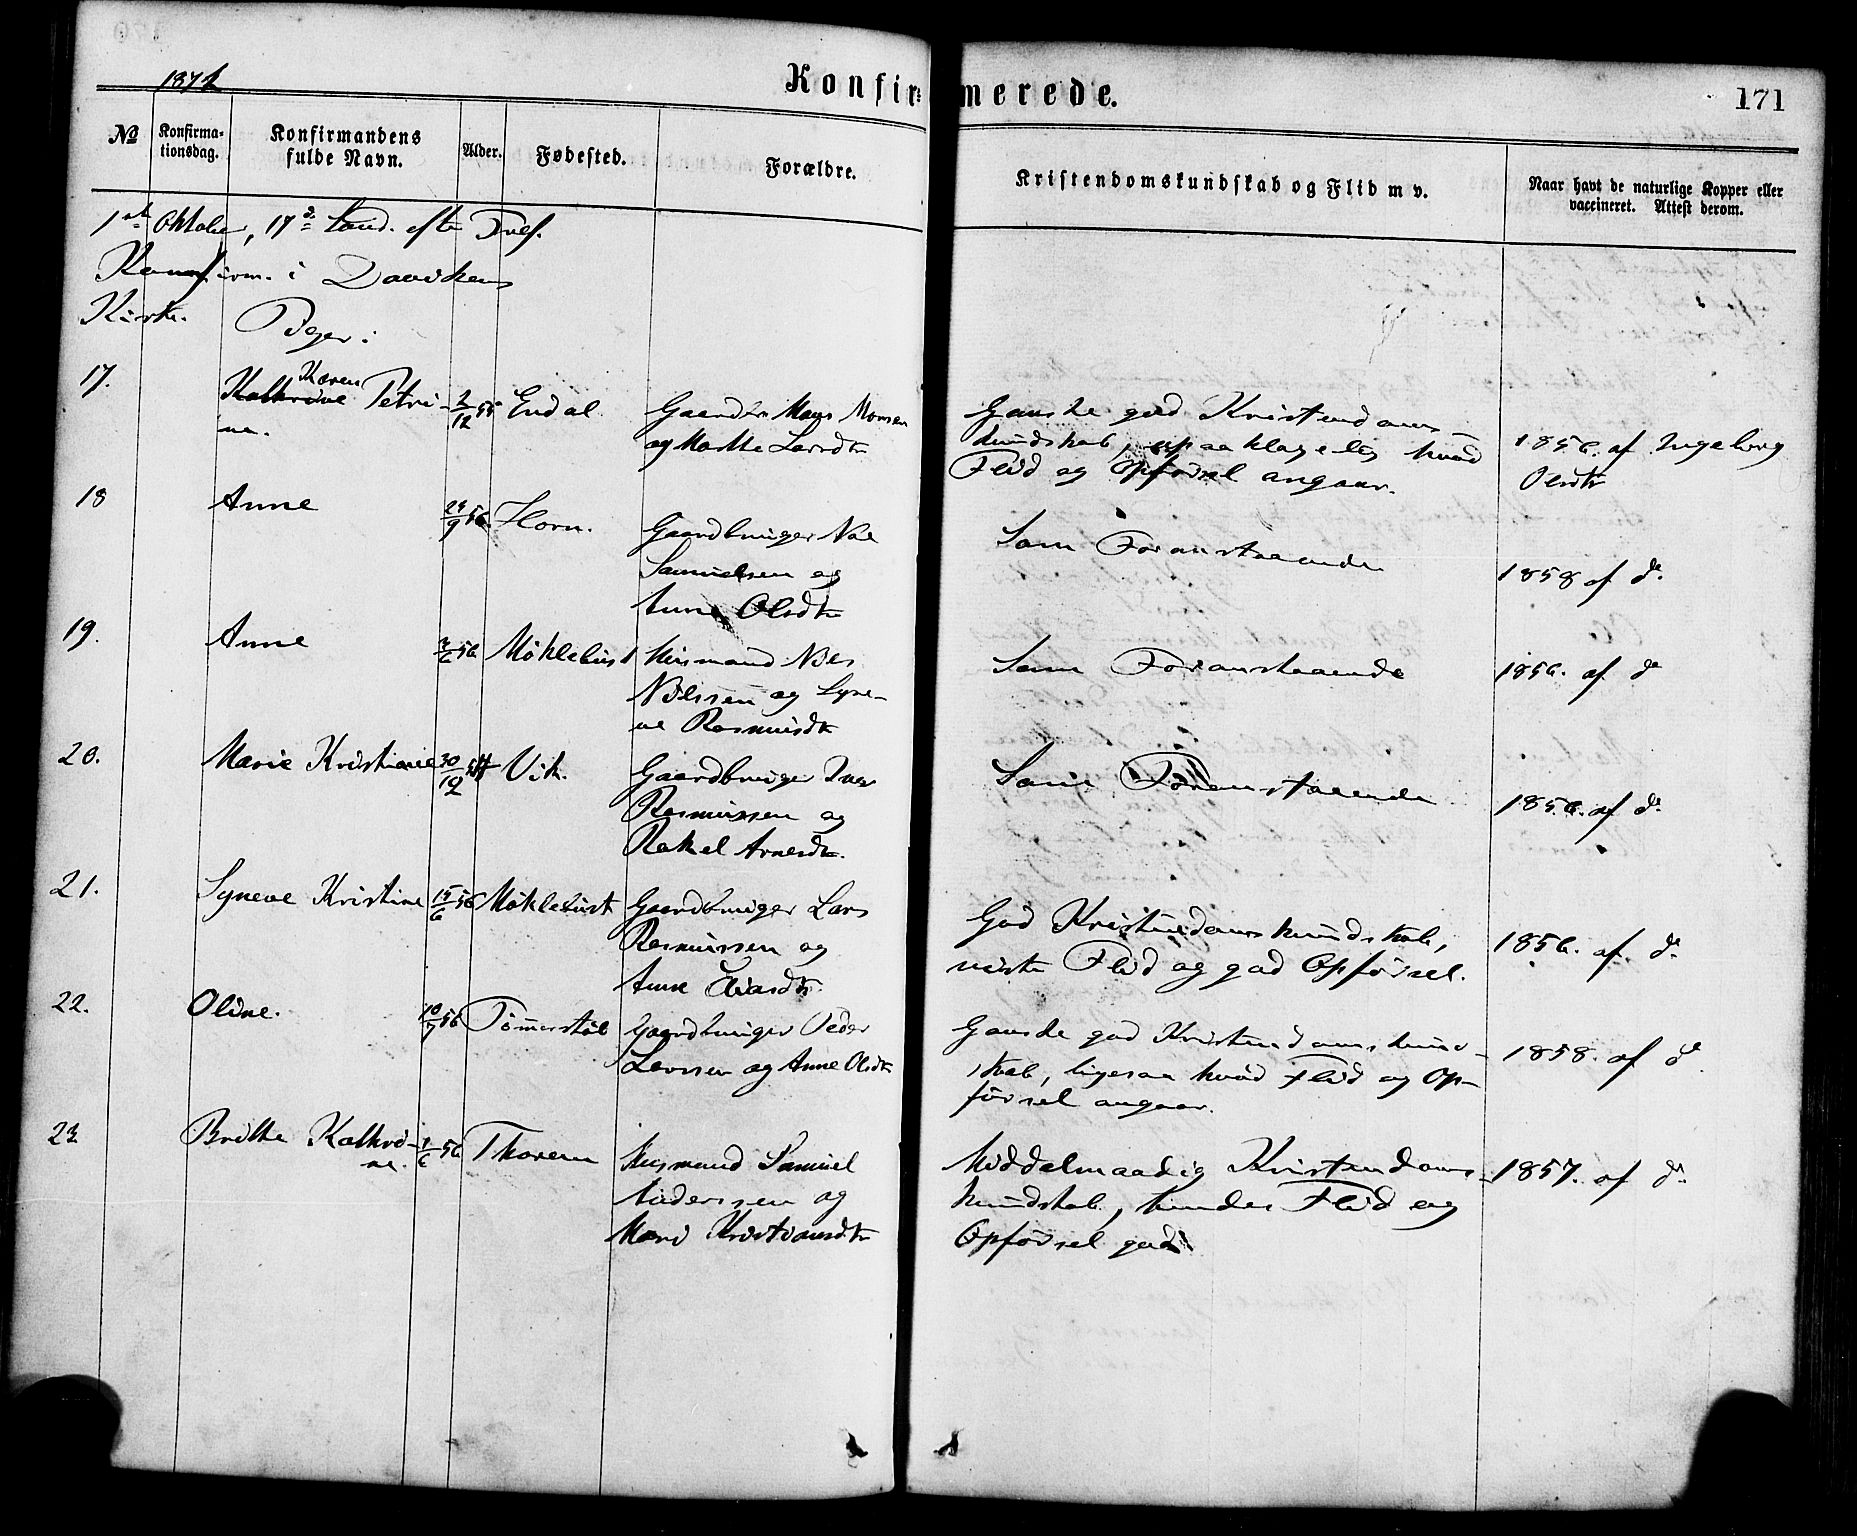 1871
Konfirmerede.
171
No
Konfirmationsdag.
Konfirmandens fulde Navn.
Alder.
Fødested.
Forældre.
Kristendomskundskab og Flid m v.
Naar havt de naturlige Kopper eller vaccineret. Attest derom.
1ste Oktober, 17de Sønd. efter Tref.
Konfirm. i Davikens
Kirke.
Piger:
17. Kathrine Karen Petri- 2/12 55 Endal. Gaardbr. Mons Monsen
ne. og Marthe Larsdtr
Ganske god Kristendoms-
kundskab, upaaklagelig hvad
Flid og Opførsel angaar.
1856. af Ingeborg
Olsdtr
18 Anne 24/9 56. Horn. Gaardbruger Noe
Samuelsen og
Anne Olsdtr
Som Foranstaaende
1858 af do.
19. Anne 3/6 56 Møklebust Husmand Nils
Nilssen og Syne-
ve Rasmusdtr
Som Foranstaaende
1856. af do
20. Marie Kristiane 30/12 Vik. Gaardbruger Iver
Rasmussen og
Rakel Arnesdtr.
Som Foranstaaende
1856. af do.
21. Syneve Kristine 15/6 56 Møklebust Gaardbruger Lars
Rasmussen og
Anne Eliasdtr.
God Kristendomskundskab,
Flid og god Opførsel.
1856. af do.
22. Oline. 10/7 56 Tømmerstøl Gaardbruger Peder
Larssen og Anne Olsdtr
Ganske god Kristendomskund-
skab, ligesaa hvad Flid og Op-
førsel angaar.
1858. af do.
23 Brithe Kathri- 1/6 56 Thoren Husmand Samuel
ne. Anderssen og
Mari Kristiansdtr
Middelmaadig Kristendoms-
kundskab, Flid og
Opførsel god
1857. af do.